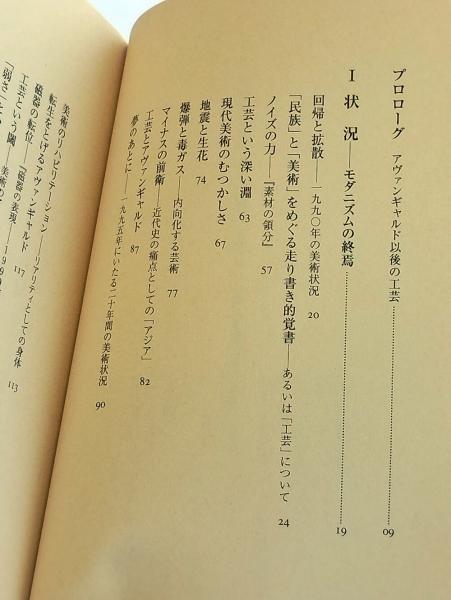 プロローグ　アヴァンギャルド以後の工芸……09
I　状　況——モダニズムの終焉……19
回帰と拡散——一九九〇年の美術状況　20
「民族」と「美術」をめぐる走り書き的覚書——あるいは「工芸」について　24
ノイズの力——『素材の領分』　57
工芸という深い淵　63
現代美術のむつかしさ　67
地震と生花　74
爆弾と毒ガス——内向化する芸術　77
マイナスの前衛——近代史の痛点としての「アジア」　82
工芸とアヴァンギャルド　87
夢のあとに——一九九五年にいたる二十年間の美術状況　90
美術のリハビリテーション——リアリティとしての身体　113
転生をとげるアヴァンギャルド　117
磁器の転位——「磁器の表現
工芸という
「弱さ」